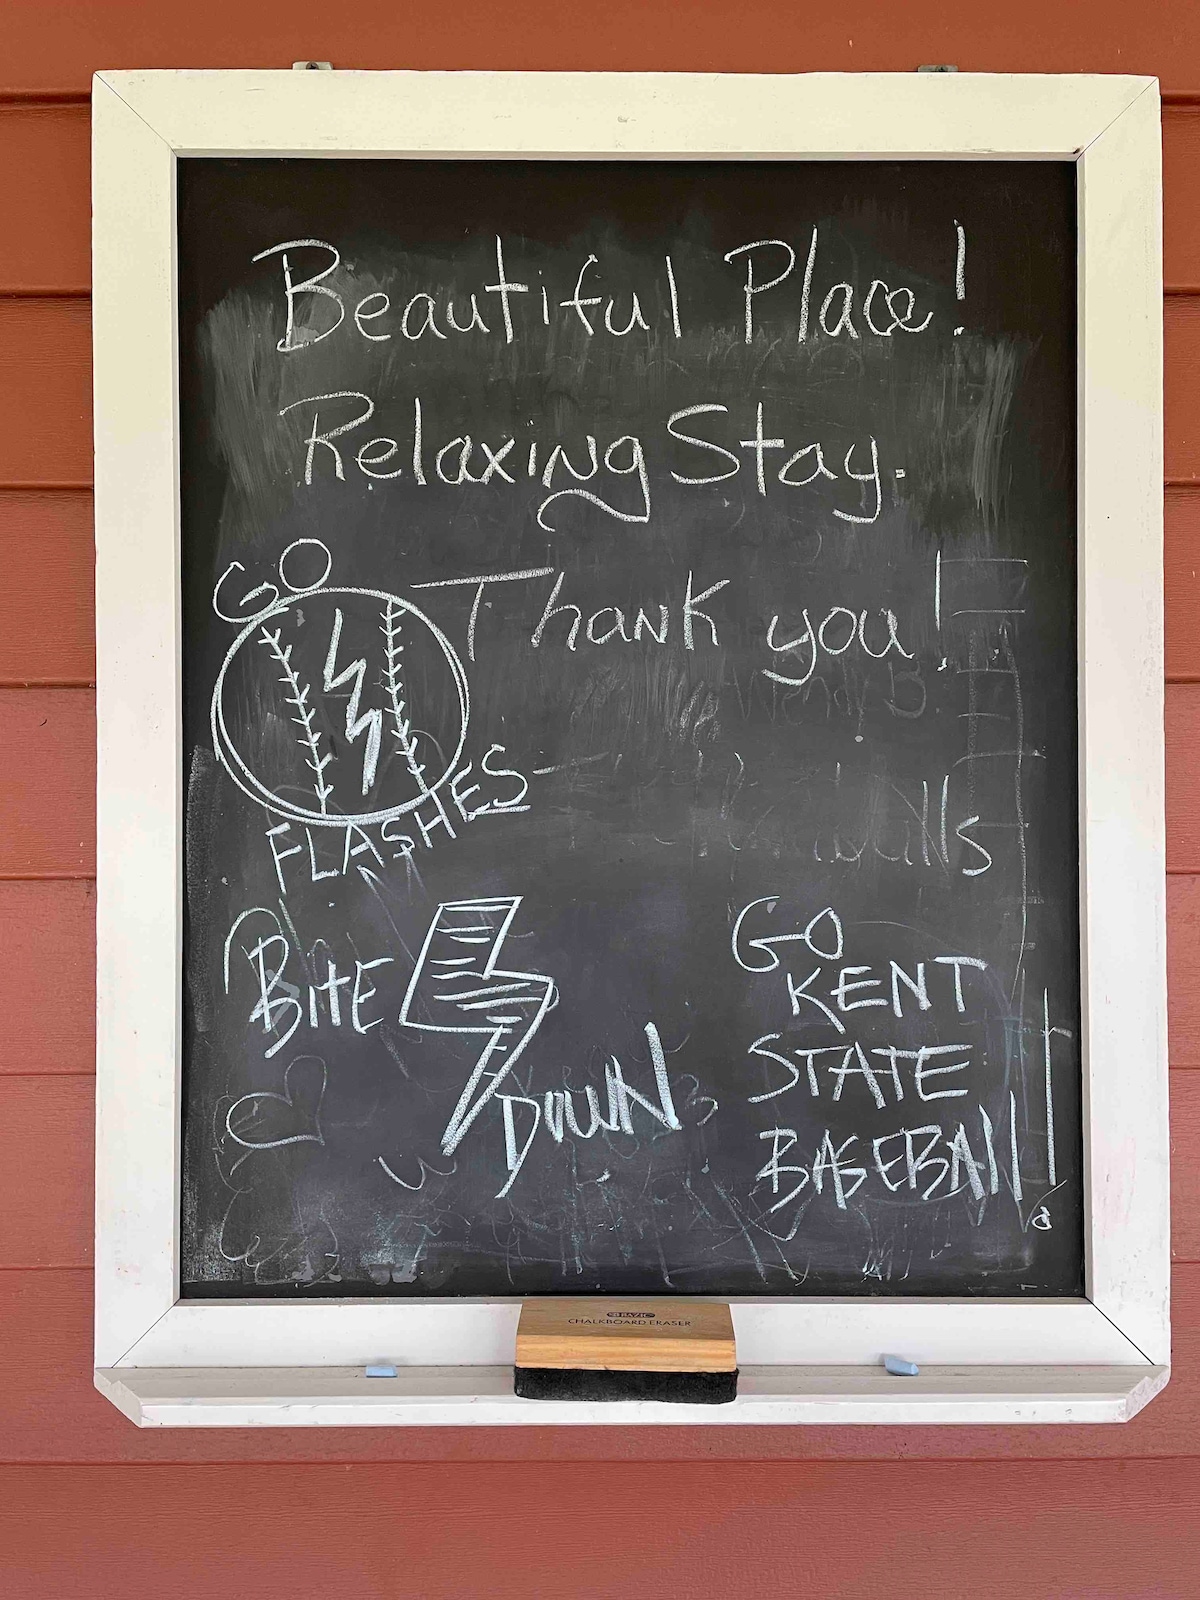 Beautiful Place!
Relaxing Stay.
Thank you!
GO
FLASHES
BITE
DOWN
GO
KENT
STATE
BASEBALL!
BAZIC
CHALKBOARD ERASER